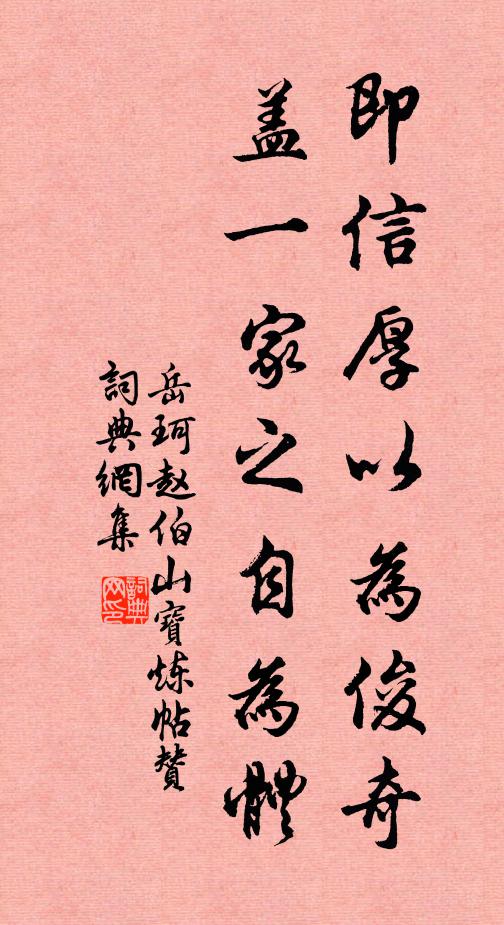 即信厚以為俊奇
蓋一家之自為體
岳珂赵伯山寶炼帖贊
詞典網集
詞典
网印